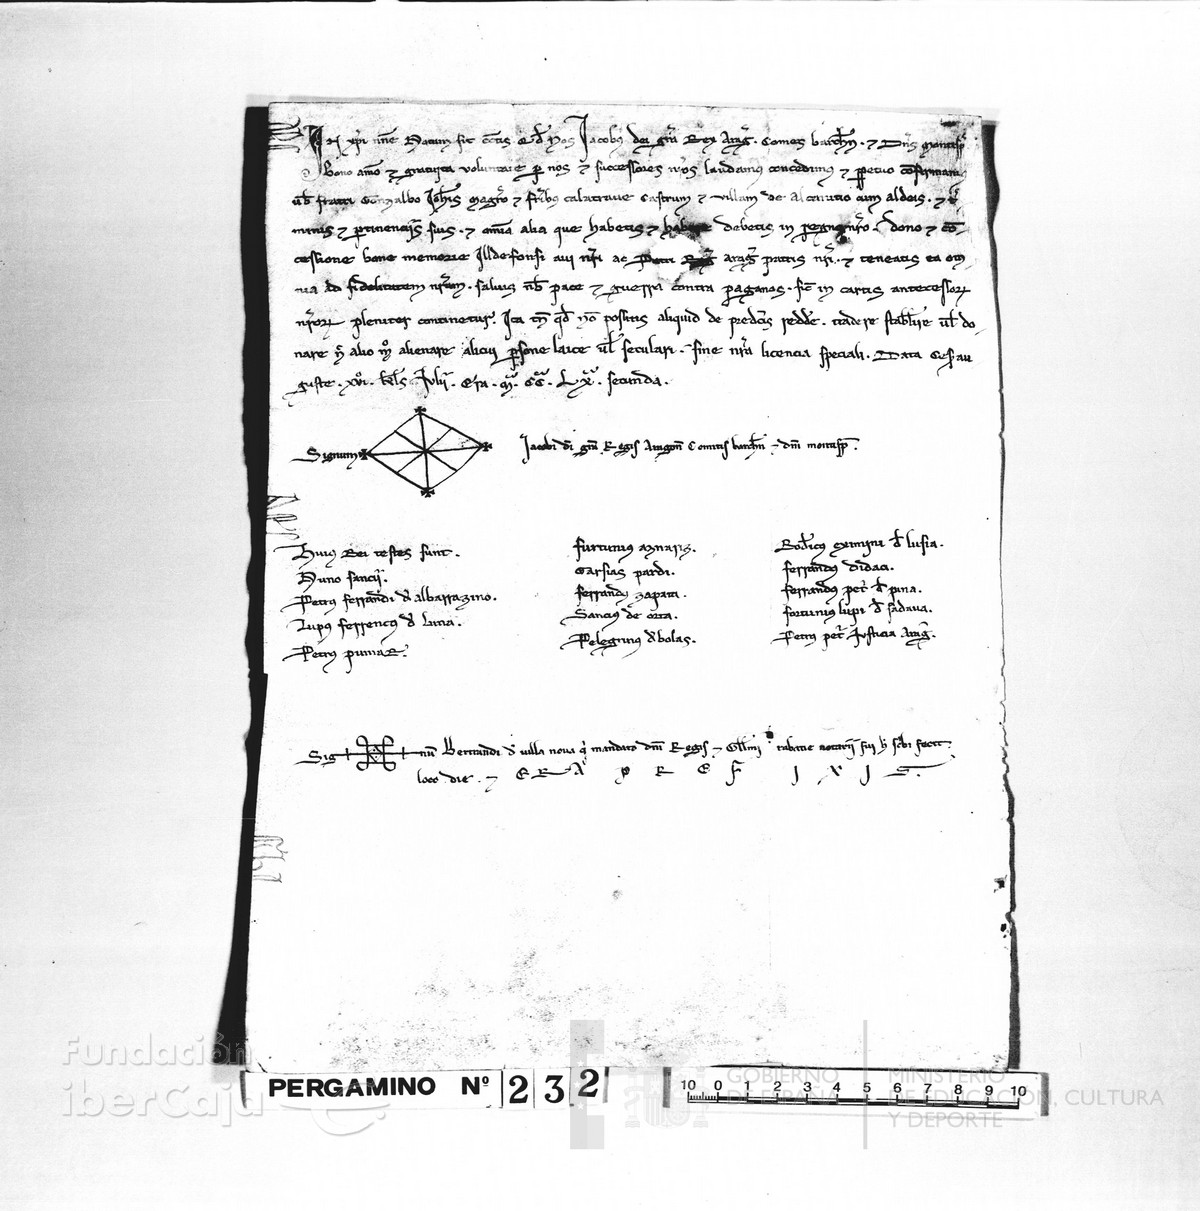 In xpi nne Notum sit cctis qd Nos Jacobus dei gra Rex Arag. Comes barchn. ⁊ Dns montispli
Bono aio ⁊ gratuita voluntate p nos ⁊ successores nros laudamus concedimus ⁊ ppetuo confirmamus
uob fratri Gonzalbo Johis magro ⁊ frib calatrave castrum ⁊ villam de Alcanicio cum aldeis. ⁊ t
minis ⁊ ptinenciis suis. ⁊ omia alia que habetis ⁊ habere debetis in regno nro. dono ⁊ con
cessione bone memorie Illdefonsi aui nri ac Petri Reg arag patris nri. ⁊ teneatis ea om
nia ad fidelitatem nram. saluis nob pace ⁊ guerra contra paganos. sic in cartis antecessor
nror plenius continetur. Ita tn qd no possitis aliquid de predcis redde. tradere stablire ul do
nare ul alio mo alienare alicui psone laice ul seculari. sine nra licencia speciali. Data Cesarau
guste. xvi. kls Julii. Era. m. cc. Lx. secunda.
Signum Jacobi di gra Regis Aragon Comitis barchn ⁊ dni montispli.
Huius Rei testes sunt.
Nuno sancii.
Petrus ferrandi d albarrazino.
Lupus ferrencus d luna.
Petrus pumar.
furtunius aznariz.
Garsias pardi.
ferrandus zapata.
Sancius de orta.
Pelegrinus d bolas.
Rodicus eximini d lusia.
ferrandus didaci.
ferrandus pet d pina.
fortunius lupi d sadaua.
Petrus pet Justicia arag.
Sig num Bertrandi d villa noua q mandato dni Regis ⁊ Gllmi rabacie notarii sui h scbi fecit
loco die. ⁊ ERA PREFIXIS.
PERGAMINO Nº 232
10 0 1 2 3 4 5 6 7 8 9 10
Fundación
iberCaja
GOBIERNO
DE ESPAÑA
MINISTERIO
DE EDUCACIÓN, CULTURA
Y DEPORTE